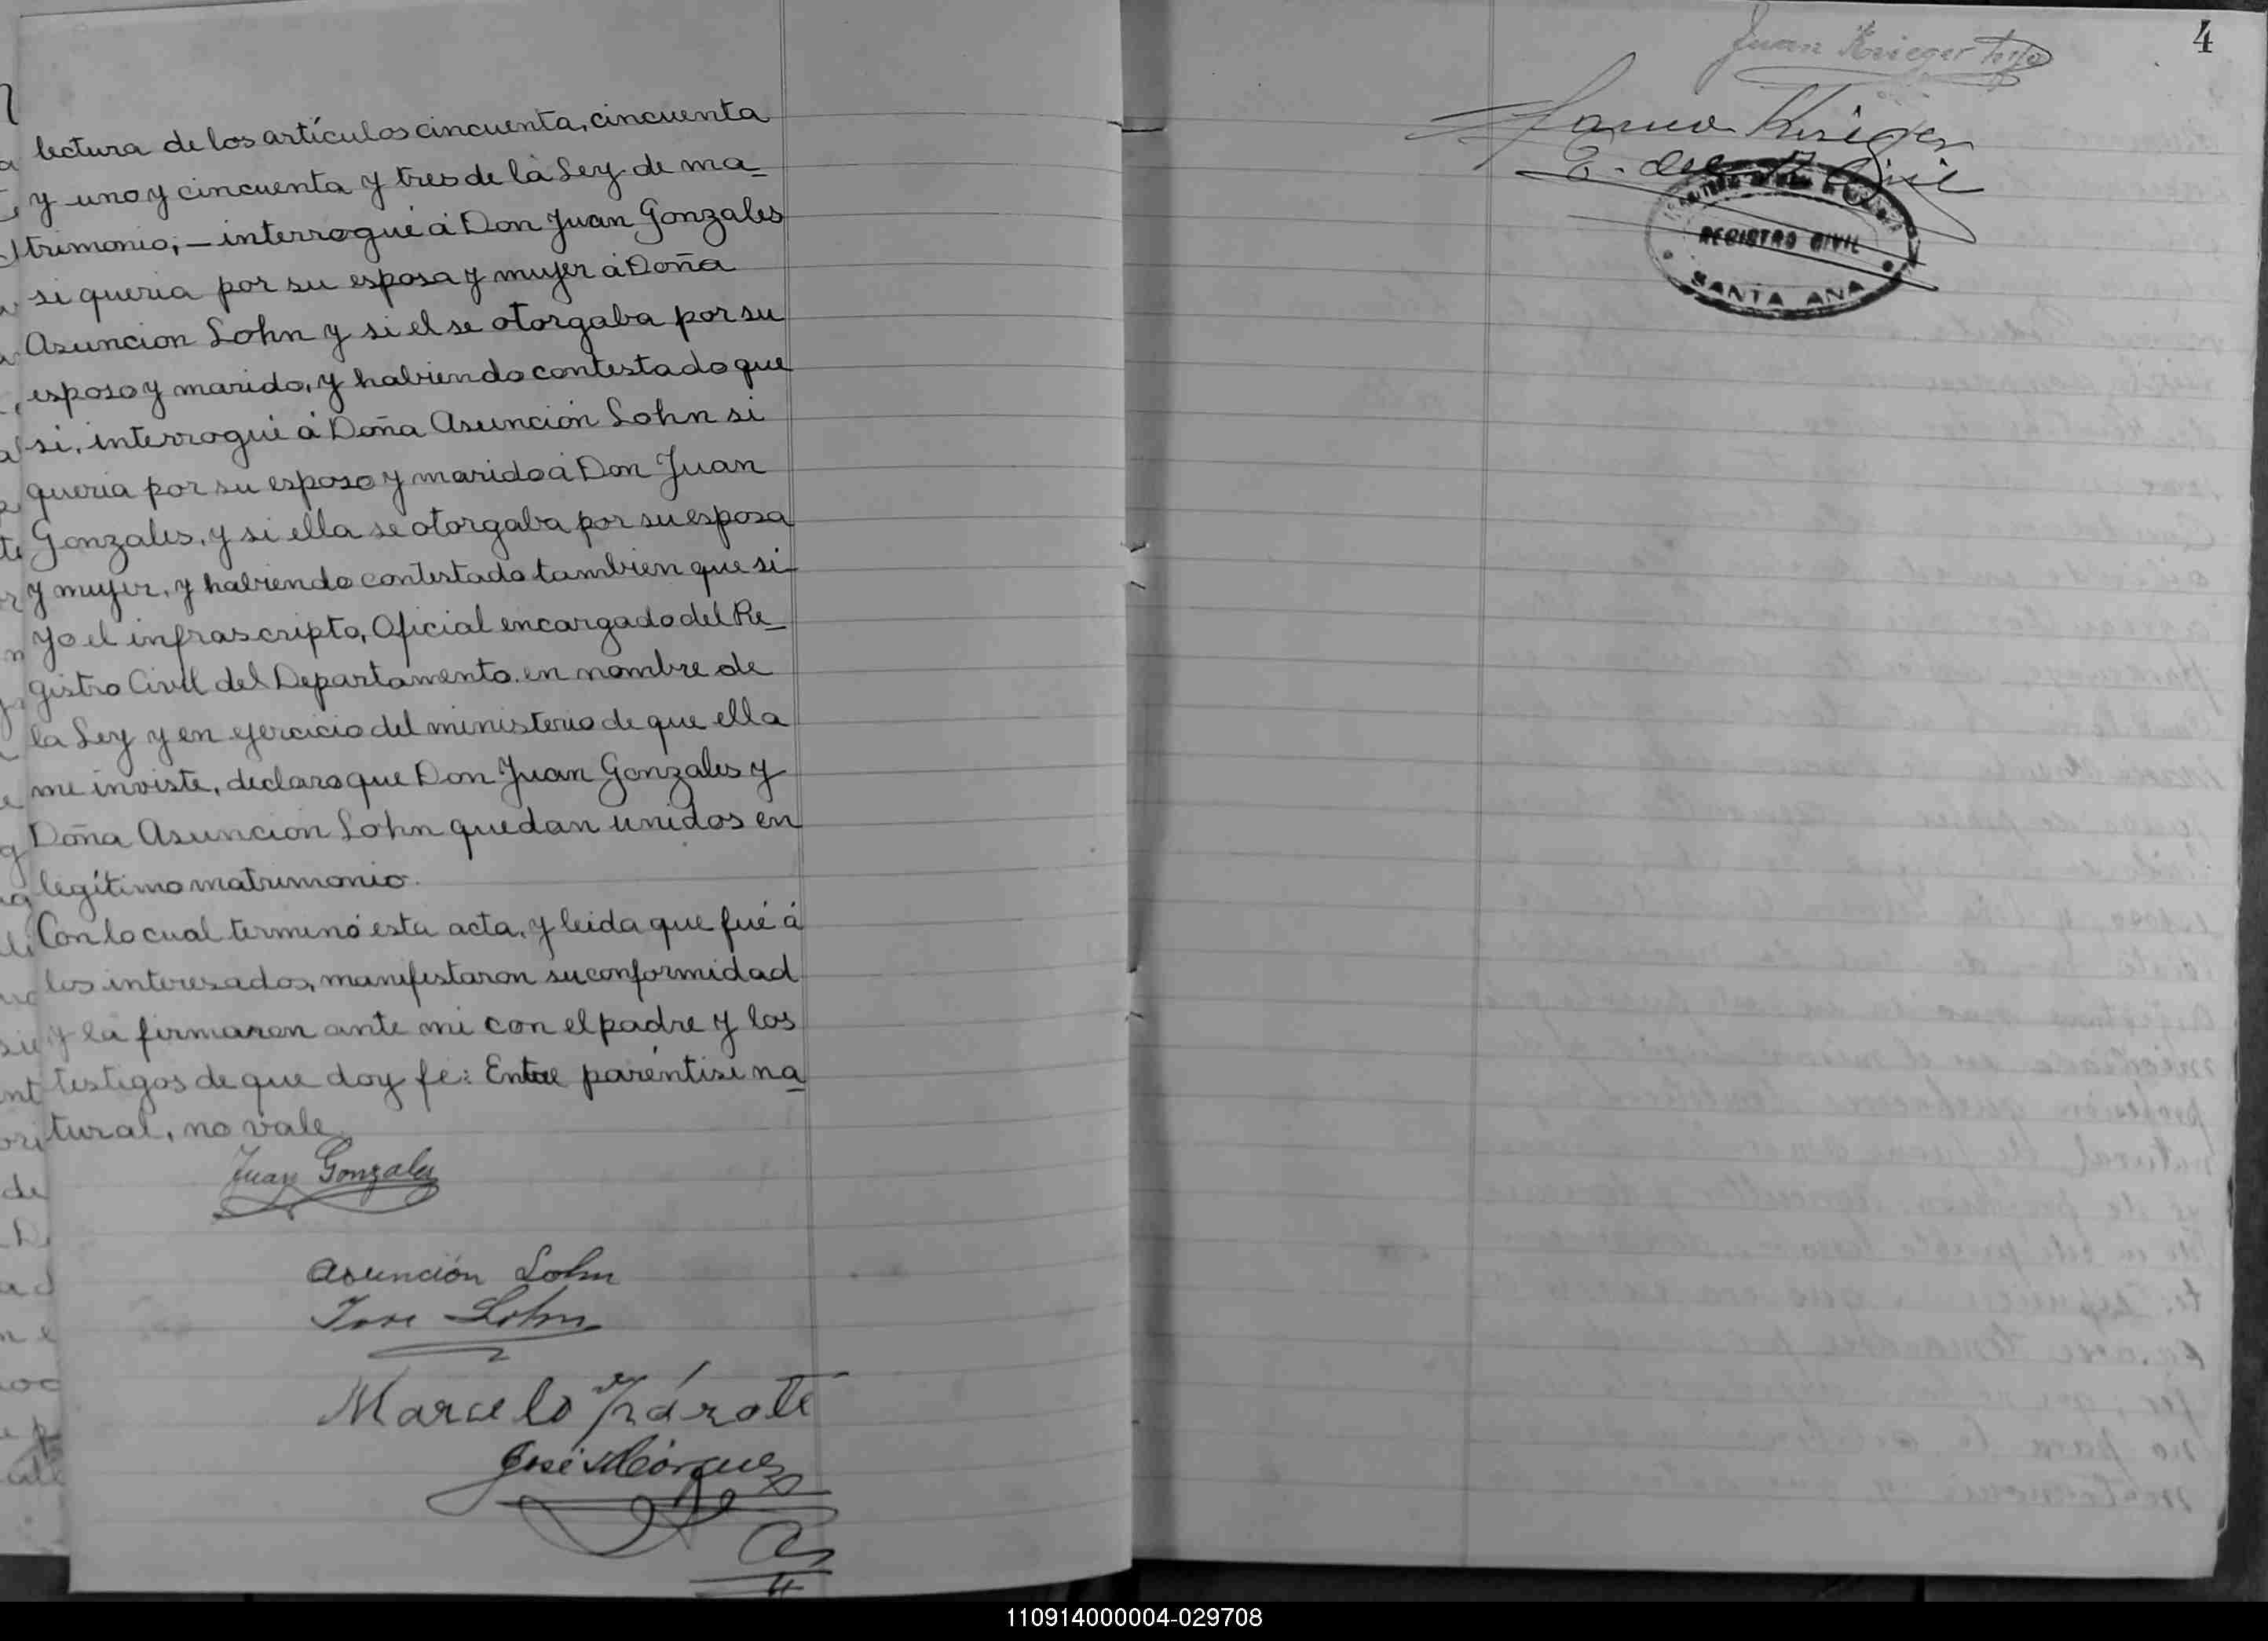 lectura de los artículos cincuenta, cincuenta
y uno y cincuenta y tres de la Ley de ma_
trimonio, — interrogué á Don Juan Gonzales
si queria por su esposa y mujer á Doña
Asuncion Lohn y si el se otorgaba por su
esposo y marido, y habiendo contestado que
si, interrogué á Doña Asunción Lohn si
queria por su esposo y marido á Don Juan
Gonzales, y si ella se otorgaba por su esposa
y mujer, y habiendo contestado tambien que si_
Yo el infrascripto, Oficial encargado del Re_
gistro Civil del Departamento. en nombre de
la Ley y en ejercicio del ministerio de que ella
me inviste, declaro que Don Juan Gonzales y
Doña Asuncion Lohn quedan unidos en
legítimo matrimonio.
Con lo cual terminó esta acta, y leida que fué á
los interesados, manifestaron su conformidad
y la firmaron ante mi con el padre y los
testigos de que doy fe: Entre paréntisi na_
tural, no vale.
Juan Gonzales
Asunción Lohn
José Lohn
Marcelo Zárate
José Márquez
4
Juan Krieger
Krieger
E. del R. Civil
REGISTRO CIVIL
SANTA ANA
110914000004-029708